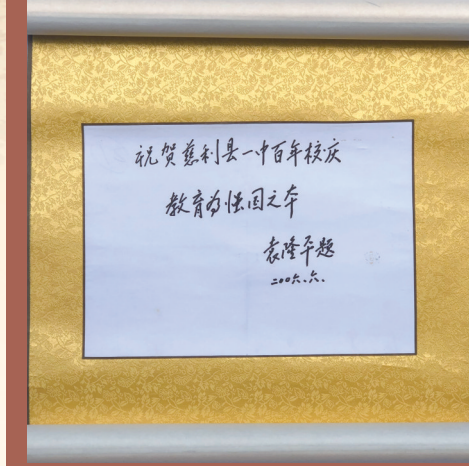 祝贺慈利县一中百年校庆
教育为强国之本
袁隆平题
二〇〇六.六.